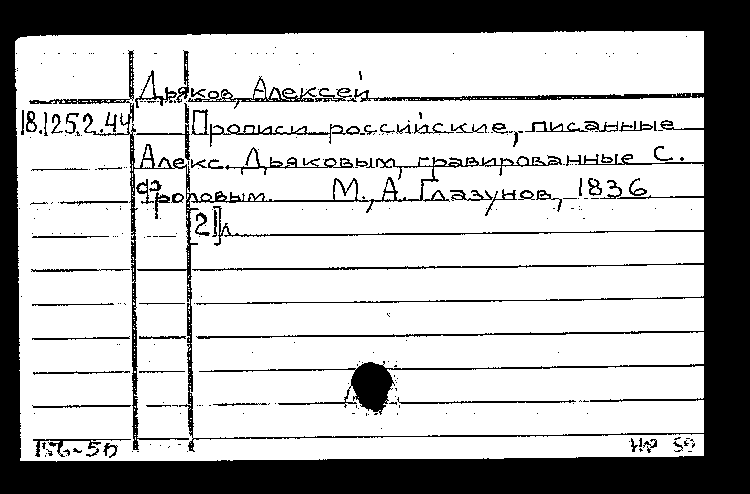 Дьяков, Алексей
18.125.2.44. Прописи российские, писанные
Алекс. Дьяковым, гравированные С.
Фроловым. М., А. Глазунов, 1836
[2]л.